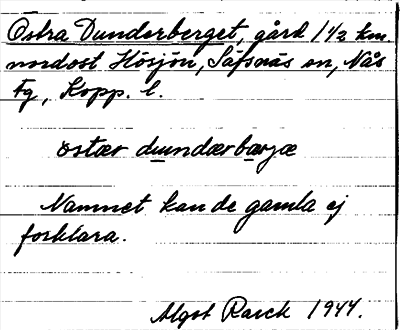 Östra Dunderberget, gård 1 1/2 km.
nordost Hösjön, Säfsnäs sn, Nås
Fg, Kopp. l.
östær dundærbærjæ
Namnet kan de gamla ej
förklara.
Algot Rasck 1944.